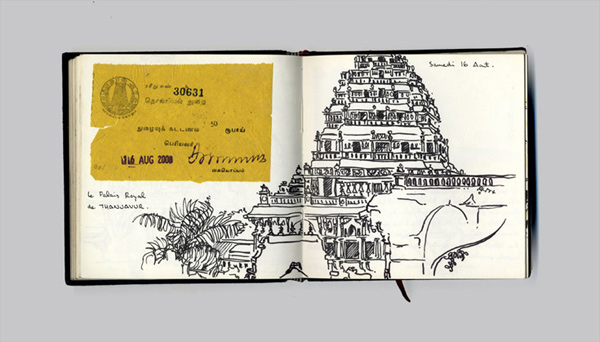 30631
தொல்லியல் துறை
50
நுழைவுக் கட்டணம் ரூபாய்
பெரியவர்
16 AUG 2008
கையொப்பம்
Le Palais Royal
de THANJAVUR.
Samedi 16 Août.